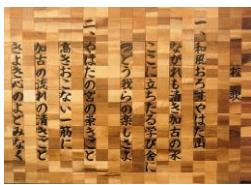 校歌
一、和風おろす やはた山
ながれも清き加古の水
ここに立ちたる学び舎に
つどう我らの楽しさよ
二、やはたの宮の きごと
高きおこない一筋に
加古の の清きごと
きよき心のよどみなく